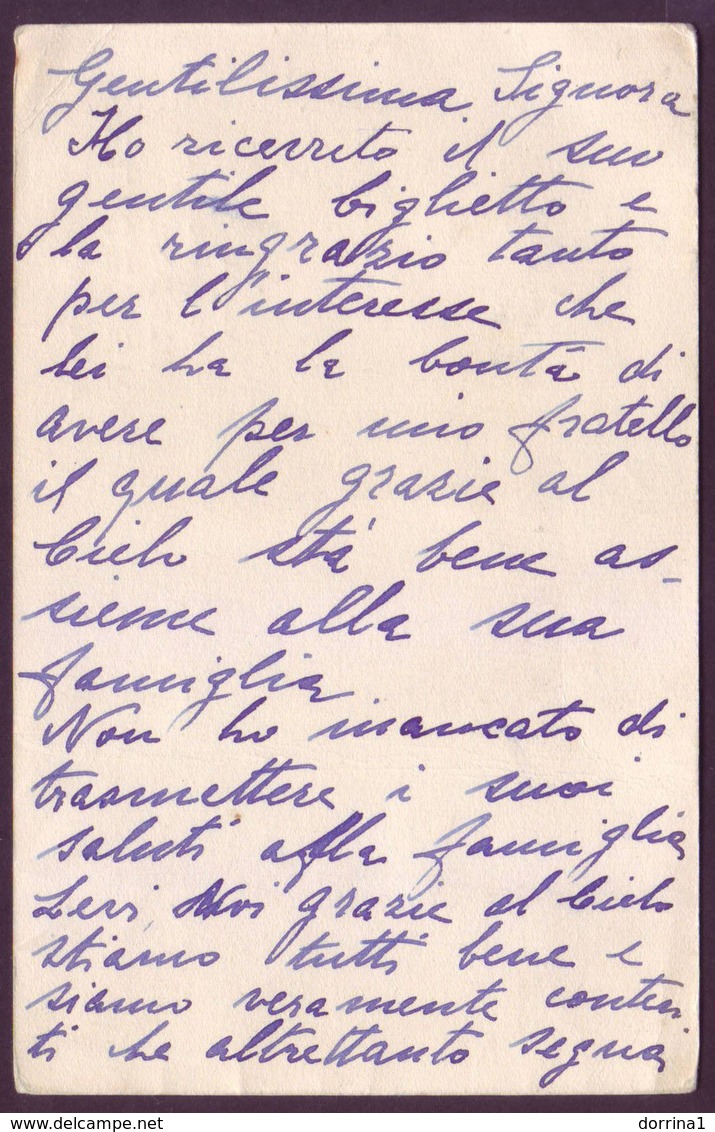 Gentilissima Signora
Ho ricevuto il suo
gentile biglietto e
la ringrazio tanto
per l'interesse che
lei ha la bontà di
avere per mio fratello
il quale grazie al
Cielo stà bene as-
sieme alla sua
famiglia
Non ho mancato di
trasmettere i suoi
saluti alla famiglia
Levi, Noi grazie al Cielo
stiamo tutti bene e
siamo veramente conten
ti che altrettanto segua
delcampe.net
dorrina1